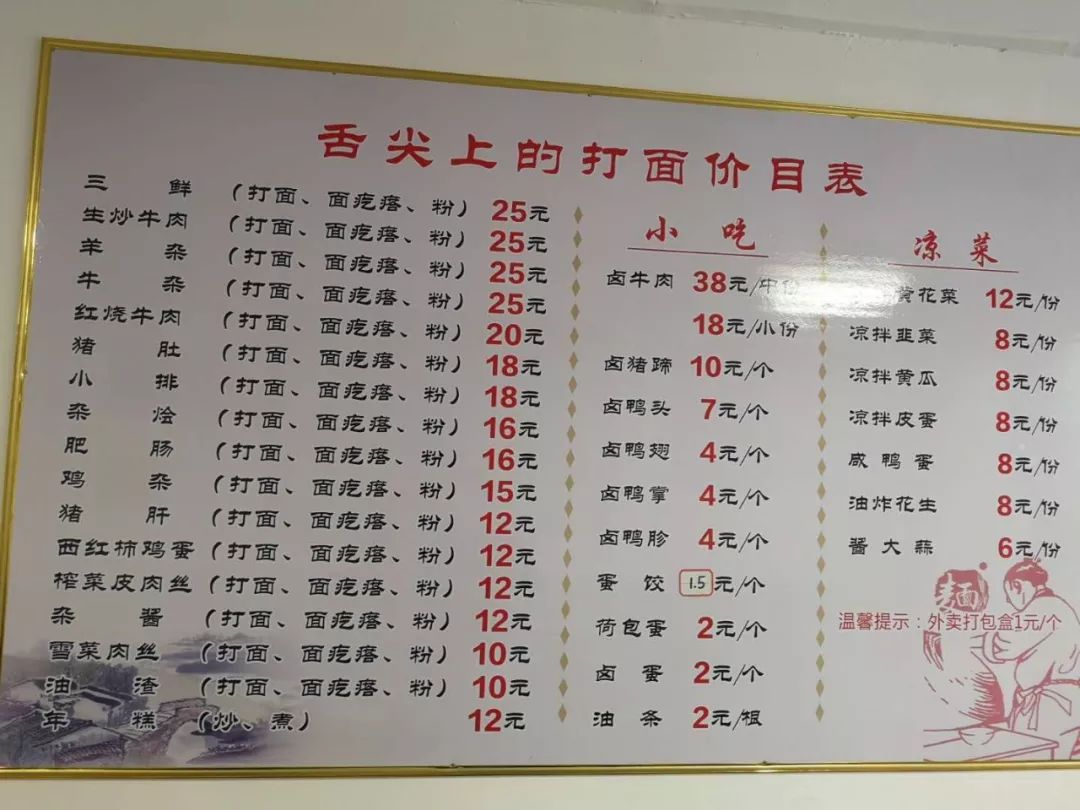 舌尖上的打面价目表
三鲜 (打面、面疙瘩、粉) 25元
生炒牛肉 (打面、面疙瘩、粉) 25元
羊杂 (打面、面疙瘩、粉) 25元
牛杂 (打面、面疙瘩、粉) 25元
红烧牛肉 (打面、面疙瘩、粉) 20元
猪肚 (打面、面疙瘩、粉) 18元
小排 (打面、面疙瘩、粉) 18元
杂烩 (打面、面疙瘩、粉) 16元
肥肠 (打面、面疙瘩、粉) 16元
鸡杂 (打面、面疙瘩、粉) 15元
猪肝 (打面、面疙瘩、粉) 12元
西红柿鸡蛋 (打面、面疙瘩、粉) 12元
榨菜皮肉丝 (打面、面疙瘩、粉) 12元
杂酱 (打面、面疙瘩、粉) 12元
雪菜肉丝 (打面、面疙瘩、粉) 10元
油渣 (打面、面疙瘩、粉) 10元
年糕 (炒、煮) 12元
小吃
卤牛肉 38元/中份
18元/小份
卤猪蹄 10元/个
卤鸭头 7元/个
卤鸭翅 4元/个
卤鸭掌 4元/个
卤鸭胗 4元/个
蛋饺 1.5元/个
荷包蛋 2元/个
卤蛋 2元/个
油条 2元/根
凉菜
黄花菜 12元/份
凉拌韭菜 8元/份
凉拌黄瓜 8元/份
凉拌皮蛋 8元/份
咸鸭蛋 8元/份
油炸花生 8元/份
酱大蒜 6元/份
麺
温馨提示：外卖打包盒1元/个